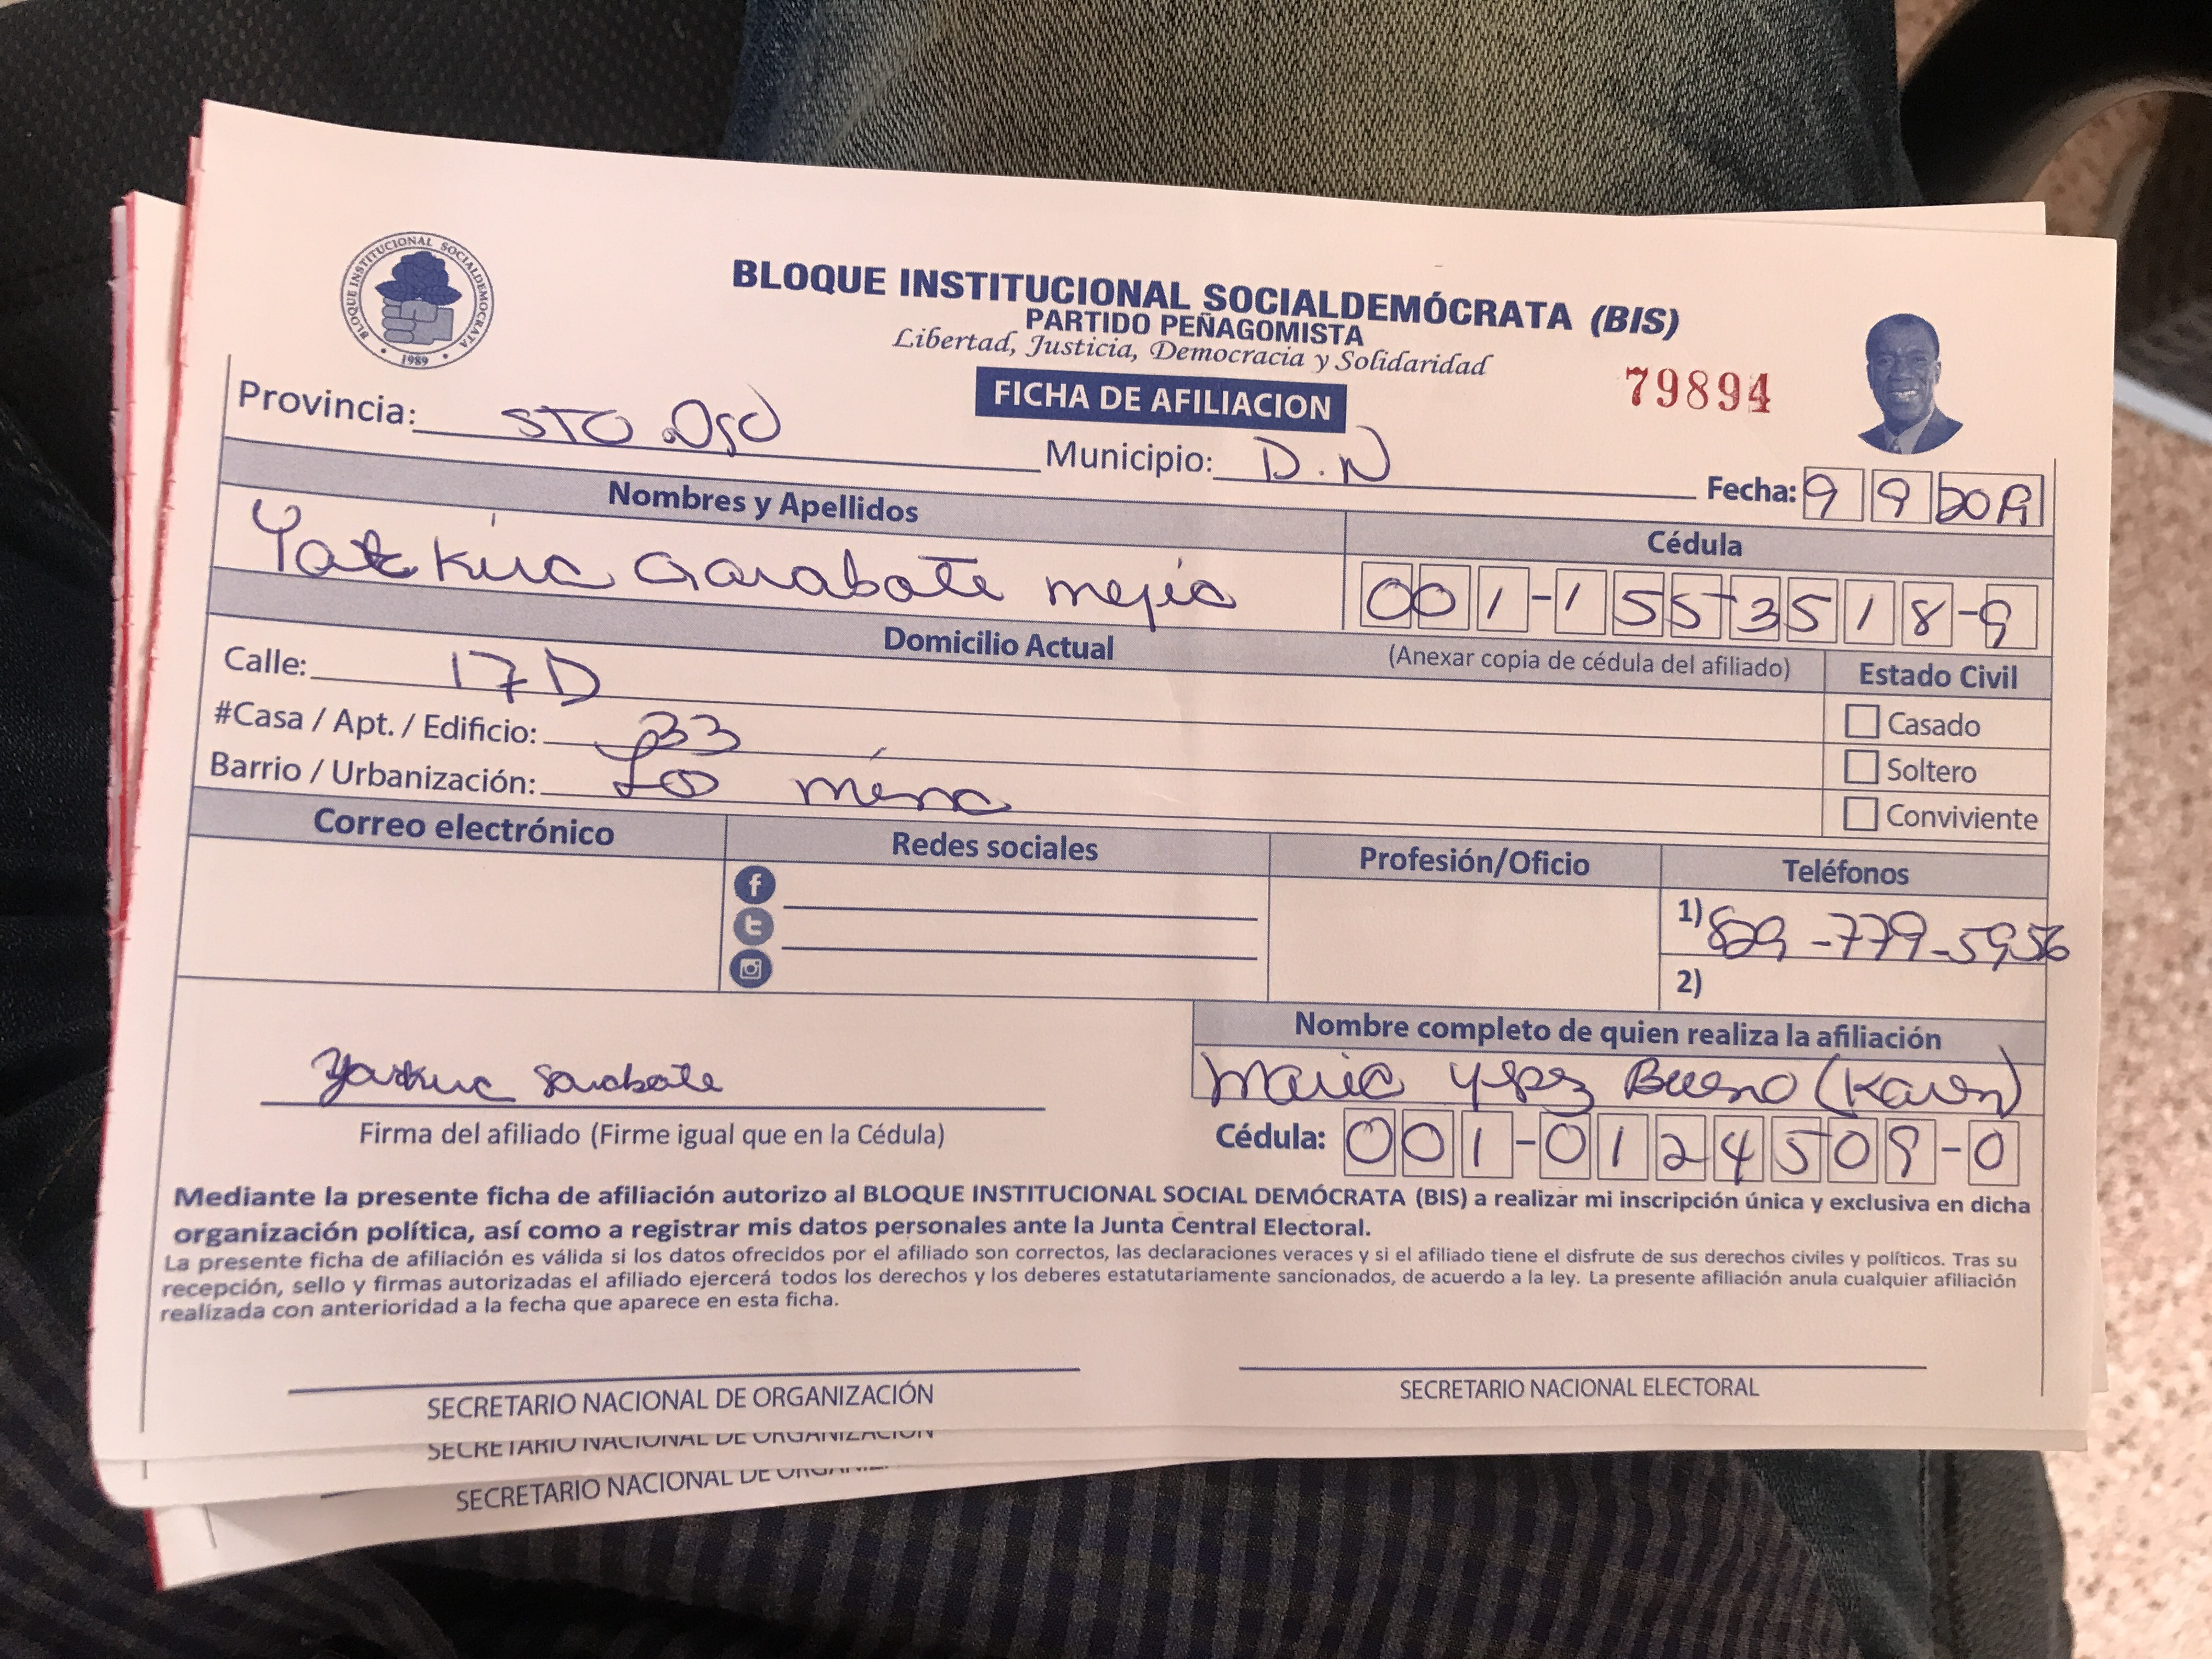 BLOQUE INSTITUCIONAL SOCIALDEMOCRATA
1989
BLOQUE INSTITUCIONAL SOCIALDEMÓCRATA (BIS)
PARTIDO PEÑAGOMISTA
Libertad, Justicia, Democracia y Solidaridad
79894
FICHA DE AFILIACION
Provincia: STO.Dgo
Municipio: D.N
Fecha: 9 9 2019
Nombres y Apellidos
Cédula
Garabote mejia
001-1553518-9
Domicilio Actual
(Anexar copia de cédula del afiliado)
Estado Civil
Calle: 17D
Casado
#Casa / Apt. / Edificio: 33
Soltero
Barrio / Urbanización: Los mina
Conviviente
Correo electrónico
Redes sociales
Profesión/Oficio
Teléfonos
1) 829-779-5956
2)
Nombre completo de quien realiza la afiliación
Maria Bueno (Karen)
Firma del afiliado (Firme igual que en la Cédula)
Cédula: 001-0124509-0
Mediante la presente ficha de afiliación autorizo al BLOQUE INSTITUCIONAL SOCIAL DEMÓCRATA (BIS) a realizar mi inscripción única y exclusiva en dicha
organización política, así como a registrar mis datos personales ante la Junta Central Electoral.
La presente ficha de afiliación es válida si los datos ofrecidos por el afiliado son correctos, las declaraciones veraces y si el afiliado tiene el disfrute de sus derechos civiles y políticos. Tras su
recepción, sello y firmas autorizadas el afiliado ejercerá todos los derechos y los deberes estatutariamente sancionados, de acuerdo a la ley. La presente afiliación anula cualquier afiliación
realizada con anterioridad a la fecha que aparece en esta ficha.
SECRETARIO NACIONAL DE ORGANIZACIÓN
SECRETARIO NACIONAL ELECTORAL
SECRETARIO NACIONAL DE ORGANIZACIÓN
SECRETARIO NACIONAL DE